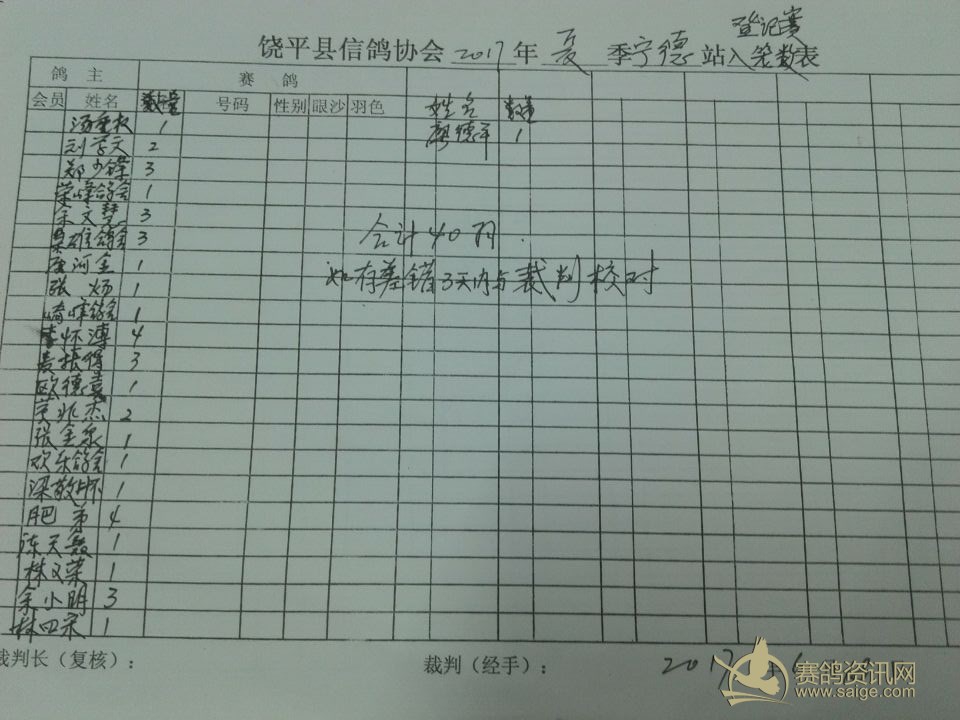 登记赛
饶平县信鸽协会 2017 年 夏 季宁德 站入笼数表
鸽 主 赛 鸽
会员 姓名 数量 号码 性别 眼沙 羽色 姓名 数量
1 廖德平 1
刘学文 2
郑少锋 3
荣峰鸽舍 1
余文楚 3
雄鸽舍 3
河金 1
张炳 1
崎峰鸽舍 1
李怀溥 4
振 3
欧德嘉 1
兆杰 2
张金泉 1
欢乐鸽舍 1
深敬怀 1
肥弟 4
陈天 1
林文荣 1
余小明 3
林四 1
合计40羽.
如有差错3天内与裁判校对
裁判长（复核）： 裁判（经手）： 2017年6
赛鸽资讯网
www.saige.com